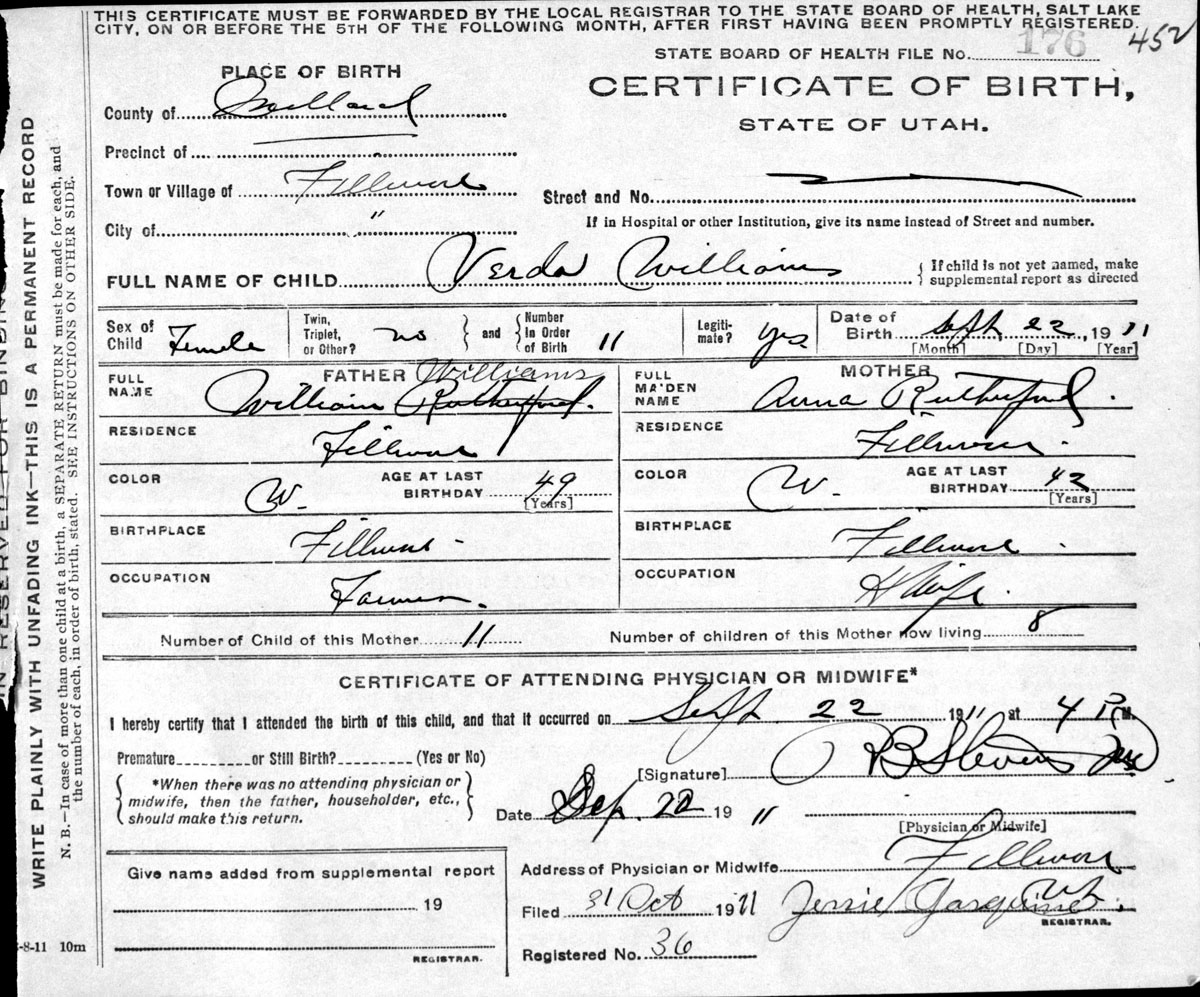 THIS CERTIFICATE MUST BE FORWARDED BY THE LOCAL REGISTRAR TO THE STATE BOARD OF HEALTH, SALT LAKE
CITY, ON OR BEFORE THE 5TH OF THE FOLLOWING MONTH, AFTER FIRST HAVING BEEN PROMPTLY REGISTERED.
452
STATE BOARD OF HEALTH FILE No. 176
CERTIFICATE OF BIRTH,
STATE OF UTAH.
PLACE OF BIRTH
County of Millard
Precinct of
Town or Village of Fillmore
City of "
Street and No.
If in Hospital or other Institution, give its name instead of Street and number.
FULL NAME OF CHILD Verda Williams
If child is not yet named, make
supplemental report as directed
Sex of Child Female
Twin, Triplet, or Other? no
and Number in Order of Birth 11
Legiti-mate? yes
Date of Birth Sept 22, 1911
[Month] [Day] [Year]
FATHER
FULL NAME William Rutherford. Williams
RESIDENCE Fillmore
COLOR W.
AGE AT LAST BIRTHDAY 49
[Years]
BIRTHPLACE Fillmore
OCCUPATION Farmer.
MOTHER
FULL MAIDEN NAME Anna Rutherford.
RESIDENCE Fillmore
COLOR W.
AGE AT LAST BIRTHDAY 42
[Years]
BIRTHPLACE Fillmore
OCCUPATION H Wife.
Number of Child of this Mother 11 Number of children of this Mother now living 8
CERTIFICATE OF ATTENDING PHYSICIAN OR MIDWIFE*
I hereby certify that I attended the birth of this child, and that it occurred on Sept 22 1911 at 4 P M.
Premature or Still Birth? (Yes or No)
*When there was no attending physician or
midwife, then the father, householder, etc.,
should make this return.
[Signature] B Stevens
Date Sep. 22 19 11
[Physician or Midwife]
Address of Physician or Midwife Fillmore
Ut.
Filed 31 Oct 1911 Jessie
REGISTRAR.
Registered No. 36
Give name added from supplemental report
19
REGISTRAR.
-8-11 10m
WRITE PLAINLY WITH UNFADING INK—THIS IS A PERMANENT RECORD
N. B.—In case of more than one child at a birth, a SEPARATE RETURN must be made for each, and
the number of each, in order of birth, stated. SEE INSTRUCTIONS ON OTHER SIDE.